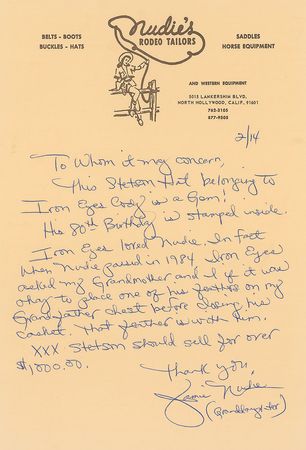 Nudie's
RODEO TAILORS
BELTS - BOOTS
BUCKLES - HATS
SADDLES
HORSE EQUIPMENT
AND WESTERN EQUIPMENT
5015 LANKERSHIM BLVD.
NORTH HOLLYWOOD, CALIF. 91601
762-3105
877-9505
2/14
To Whom it my concern,
This Stetson Hat belonging to
Iron Eyes Cody is a Gem!
His 80th Birthday is stamped inside.
Iron Eyes loved Nudie. In fact
When Nudie passed in 1984, Iron Eyes
asked my Grandmother and I if it was
okay to place one of his feathers on my
Grandfather chest before closing his
casket. That feather is with him.
XXX Stetson should sell for over
$1,000.00.
Thank you,
Jamie Nudie
(Granddaughter)